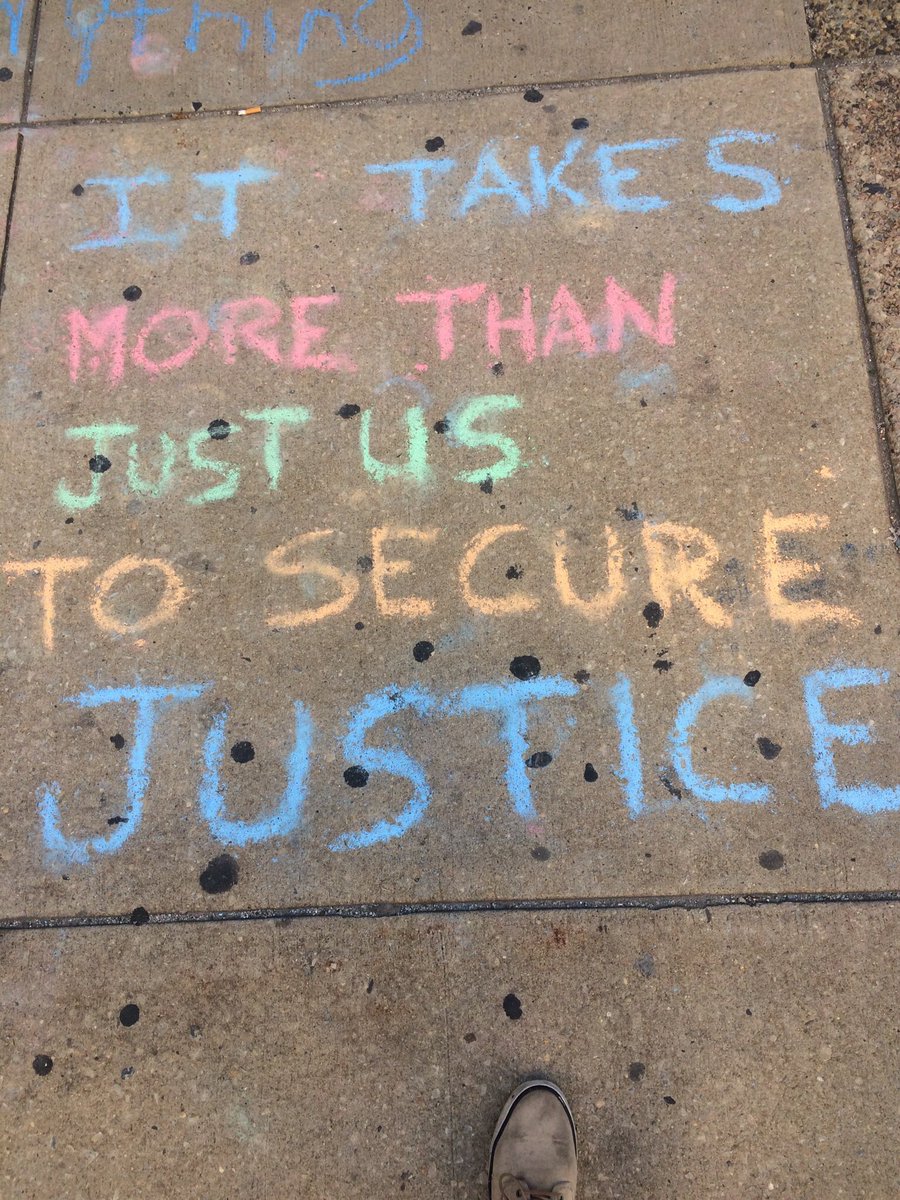 ything
IT TAKES
MORE THAN
JUST US
TO SECURE
JUSTICE